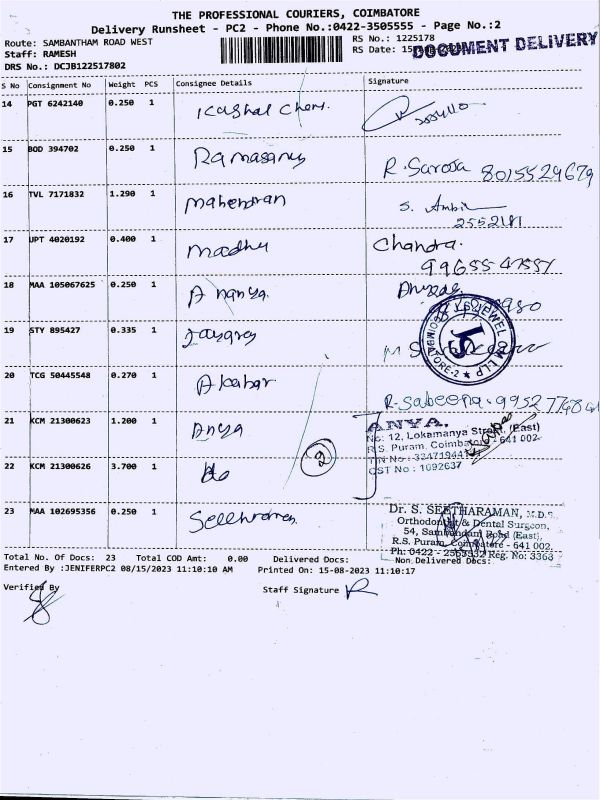 THE PROFESSIONAL COURIERS, COIMBATORE
Delivery Runsheet - PC2 - Phone No.:0422-3505555 - Page No.:2
Route: SAMBANTHAM ROAD WEST
RS No.: 1225178
Staff: RAMESH
RS Date: 15
DOCUMENT DELIVERY
DRS No.: DCJB122517802
S No Consignment No Weight PCS Consignee Details Signature
14 PGT 6242140 0.250 1
15 BOD 394702 0.250 1 Ramasamy R. Saroja 8015529679
16 TVL 7171832 1.290 1 Mahendran S.
2552181
17 UPT 4020192 0.400 1 Madhu Chandra.
99655 47557
18 MAA 105067625 0.250 1 Ananya.
19 STY 895427 0.335 1
20 TCG 50445548 0.270 1 Akabar R. Sabeena. 99527768
21 KCM 21300623 1.200 1 Anya
ANYA,
No: 12, Lokamanya Street, (East)
R.S. Puram, Coimbatore - 641 002.
CST No : 1092637
22 KCM 21300626 3.700 1 2
23 MAA 102695356 0.250 1
Dr. S. SEETHARAMAN, M.D.S.,
Orthodontist & Dental Surgeon,
54, Sambandam Road (East),
R.S. Puram, Coimbatore - 641 002.
Ph: 0422 - Reg. No: 3363
Total No. Of Docs: 23 Total COD Amt: 0.00 Delivered Docs: Non Delivered Docs:
Entered By :JENIFERPC2 08/15/2023 11:10:10 AM Printed On: 15-08-2023 11:10:17
Verified By
Staff Signature